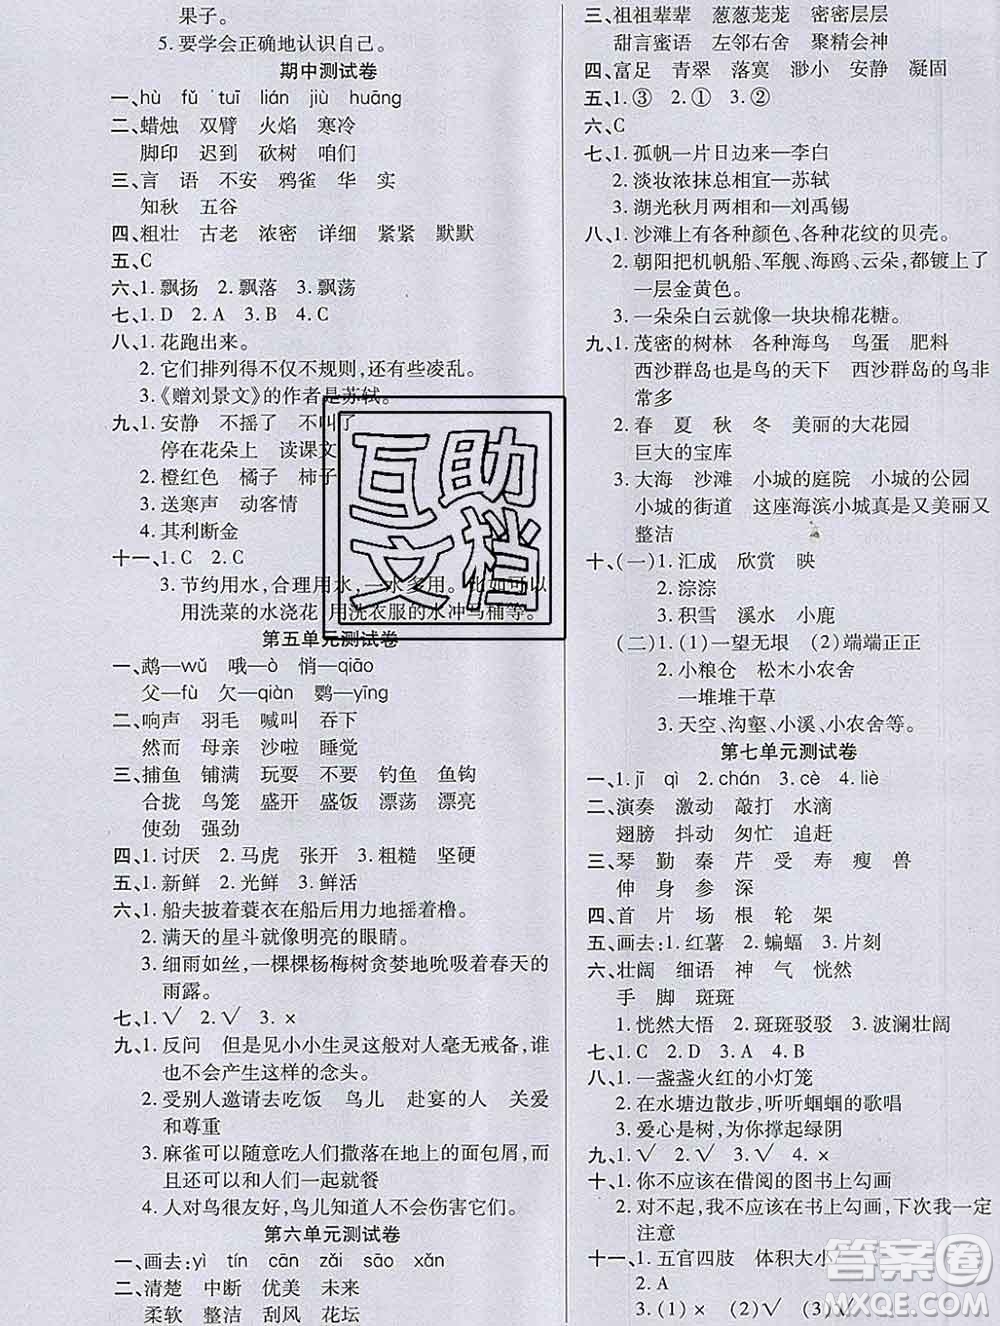 果子。
5. 要学会正确地认识自己。
期中测试卷
一、hù fǔ tuī lián jiù huāng
二、蜡烛 双臂 火焰 寒冷
脚印 迟到 砍树 咱们
三、言 语 不安 鸦雀 华 实
知秋 五谷
四、粗壮 古老 浓密 详细 紧紧 默默
五、C
六、1. 飘扬 2. 飘落 3. 飘荡
七、1. D 2. A 3. B 4. C
八、1. 花跑出来。
2. 它们排列得不仅不规则,还有些凌乱。
3.《赠刘景文》的作者是苏轼。
九、1. 安静 不摇了 不叫了
停在花朵上 读课文
2. 橙红色 橘子 柿子
3. 送寒声 动客情
4. 其利断金
十一、1. C 2. C
3. 节约用水,合理用水,一水多用。比如可以
用洗菜的水浇花 用洗衣服的水冲马桶等。
第五单元测试卷
一、鹉—wǔ 哦—ò 悄—qiāo
父—fù 欠—qiàn 鹦—yīng
二、响声 羽毛 喊叫 吞下
然而 母亲 沙啦 睡觉
三、捕鱼 铺满 玩耍 不要 钓鱼 鱼钩
合拢 鸟笼 盛开 盛饭 漂荡 漂亮
使劲 强劲
四、1. 讨厌 2. 马虎 张开 3. 粗糙 坚硬
五、1. 新鲜 2. 光鲜 3. 鲜活
六、1. 船夫披着蓑衣在船后用力地摇着橹。
2. 满天的星斗就像明亮的眼睛。
3. 细雨如丝,一棵棵杨梅树贪婪地吮吸着春天的
雨露。
七、1. √ 2. √ 3. ×
九、1. 反问 但是见小小生灵这般对人毫无戒备,谁
也不会产生这样的念头。
2. 受别人邀请去吃饭 鸟儿 赴宴的人 关爱
和尊重
3. 麻雀可以随意吃人们撒落在地上的面包屑,而
且还可以和人们一起就餐
4. 人对鸟很友好,鸟儿知道人不会伤害它们
第六单元测试卷
一、画去:yì tín cān zǎi sāo xǎn
二、清楚 中断 优美 未来
柔软 整洁 刮风 花坛
三、祖祖辈辈 葱葱茏茏 密密层层
甜言蜜语 左邻右舍 聚精会神
四、富足 青翠 落寞 渺小 安静 凝固
五、1. ③ 2. ① 3. ②
六、C
七、1. 孤帆一片日边来—李白
2. 淡妆浓抹总相宜—苏轼
3. 湖光秋月两相和—刘禹锡
八、1. 沙滩上有各种颜色、各种花纹的贝壳。
2. 朝阳把机帆船、军舰、海鸥、云朵,都镀上了
一层金黄色。
3. 一朵朵白云就像一块块棉花糖。
九、1. 茂密的树林 各种海鸟 鸟蛋 肥料
西沙群岛也是鸟的天下 西沙群岛的鸟非
常多
2. 春 夏 秋 冬 美丽的大花园
巨大的宝库
3. 大海 沙滩 小城的庭院 小城的公园
小城的街道 这座海滨小城真是又美丽又
整洁
十、(一)1. 汇成 欣赏 映
2. 淙淙
3. 积雪 溪水 小鹿
(二)1. (1)一望无垠 (2)端端正正
2. 小粮仓 松木小农舍
一堆堆干草
3. 天空、沟壑、小溪、小农舍等。
第七单元测试卷
一、1. jī qì 2. chán 3. cè 4. liè
二、演奏 激动 敲打 水滴
翅膀 抖动 匆忙 追赶
三、琴 勤 秦 芹 受 寿 瘦 兽
伸 身 参 深
四、首 片 场 根 轮 架
五、画去:1. 红薯 2. 蝙蝠 3. 片刻
六、壮阔 细语 神 气 恍然
手 脚 斑斑
1. 恍然大悟 2. 斑斑驳驳 3. 波澜壮阔
七、1. C 2. D 3. A 4. B
八、1. 一盏盏火红的小灯笼
2. 在水塘边散步,听听蝈蝈的歌唱
3. 爱心是树,为你撑起绿阴
九、1. √ 2. √ 3. √ 4. ×
十、1. 你不应该在借阅的图书上勾画
2. 对不起,我不应该在书上勾画,下次我一定
注意
十一、1. 五官四肢 体积大小
2. A
3. (1)× (2)√ (3)√
互助
文档
答案圈
MXQE.COM